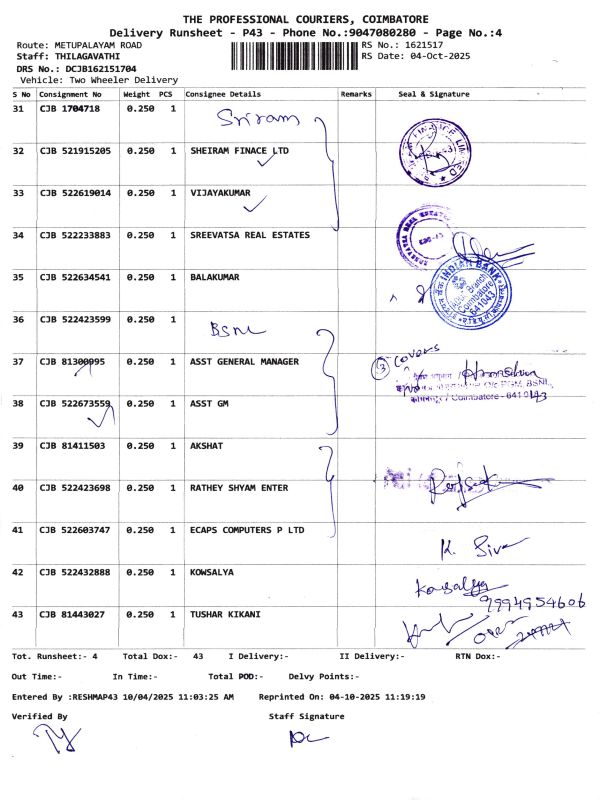 THE PROFESSIONAL COURIERS, COIMBATORE
Delivery Runsheet - P43 - Phone No.:9047080280 - Page No.:4
Route: METUPALAYAM ROAD RS No.: 1621517
Staff: THILAGAVATHI RS Date: 04-Oct-2025
DRS No.: DCJB162151704
Vehicle: Two Wheeler Delivery
S No Consignment No Weight PCS Consignee Details Remarks Seal & Signature
31 CJB 1704718 0.250 1 Sriram
32 CJB 521915205 0.250 1 SHEIRAM FINACE LTD
33 CJB 522619014 0.250 1 VIJAYAKUMAR
34 CJB 522233883 0.250 1 SREEVATSA REAL ESTATES
35 CJB 522634541 0.250 1 BALAKUMAR
INDIAN BANK
Branch
Coimbatore
641043
36 CJB 522423599 0.250 1 BSNL
37 CJB 81300995 0.250 1 ASST GENERAL MANAGER 3 covers
O/c PGM, BSNL,
/ Coimbatore - 641043
38 CJB 522673559 0.250 1 ASST GM
39 CJB 81411503 0.250 1 AKSHAT
40 CJB 522423698 0.250 1 RATHEY SHYAM ENTER
41 CJB 522603747 0.250 1 ECAPS COMPUTERS P LTD K. Siva
42 CJB 522432888 0.250 1 KOWSALYA Kowsalya
9994954606
43 CJB 81443027 0.250 1 TUSHAR KIKANI
Tot. Runsheet:- 4 Total Dox:- 43 I Delivery:- II Delivery:- RTN Dox:-
Out Time:- In Time:- Total POD:- Delvy Points:-
Entered By :RESHMAP43 10/04/2025 11:03:25 AM Reprinted On: 04-10-2025 11:19:19
Verified By Staff Signature